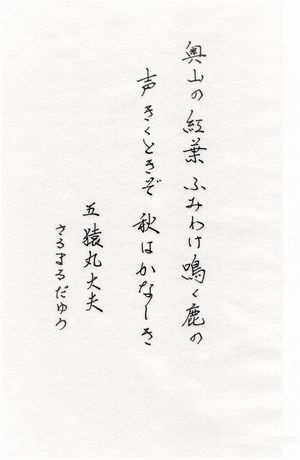 奥山の紅葉ふみわけ鳴く鹿の
声きくときぞ秋はかなしき
五 猿丸大夫
さるまるだゆう